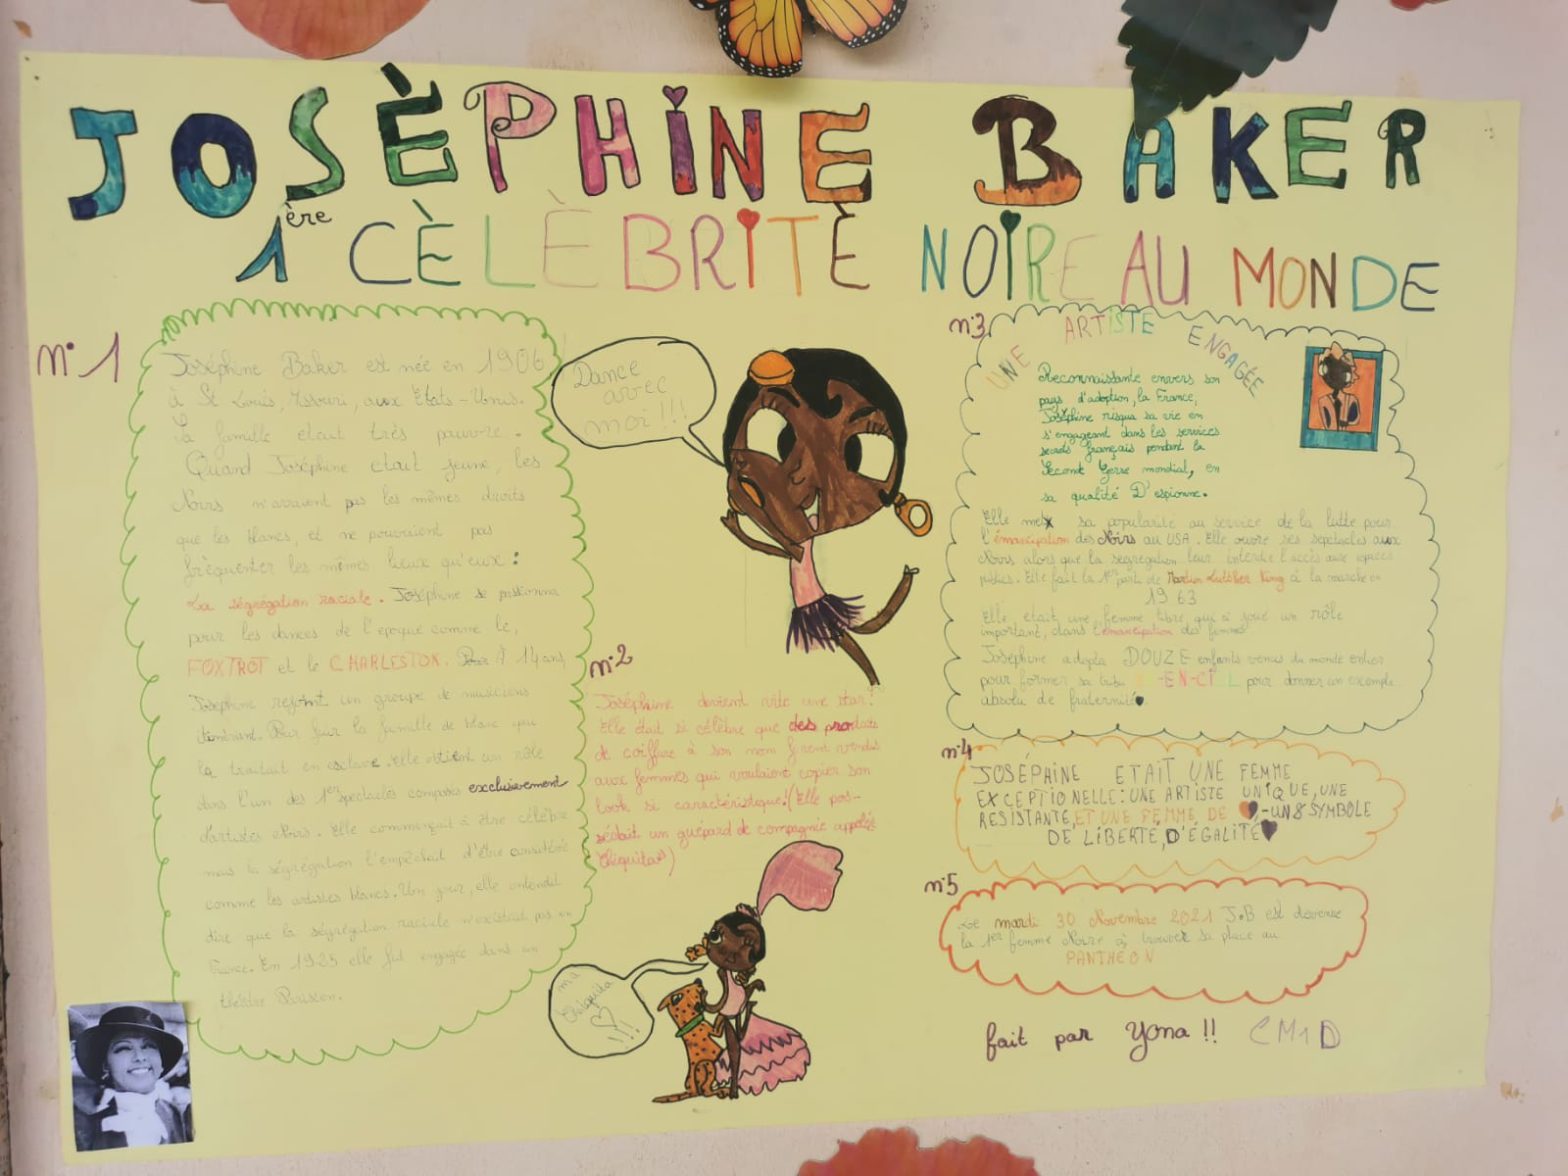 JOSÈPHINE BAKER
1ère CÈLÈBRITÈ NOIRE AU MONDE
n°1
Joséphine Baker est née en 1906
à St Louis, aux États-Unis.
Sa famille etait très pauvre.
Quand Joséphine etait jeune, les
Noirs n'avaient pas les mêmes droits
que les blancs, et ne pouvaient pas
fréquenter les mêmes lieux qu'eux:
La ségrégation raciale. Joséphine se passionna
pour les dances de l'epoque comme le,
FOXTROT et le CHARLESTON. À 14 ans,
Joséphine rejoint un groupe de musiciens
itinérant. Pour fuir la famille de blanc qui
la traitait en esclave. elle obtient un rôle
dans l'un des 1er spectacles composés exclusivement
d'artistes Noirs. Elle commençait à être célèbre
mais la ségrégation l'empêchait d'être considéré
comme les artistes blancs. Un jour, elle entendit
dire que la ségrégation raciale n'existait pas en
France. En 1925 elle fut engagée dans un
théâtre
Dance
avec
moi!!!
n°2
Joséphine devient vite une star!
Elle était si célèbre que des produits
de coiffure à son nom furent vendu
aux femmes qui voulaient copier son
look si caractéristique! (Elle pos-
sédait un guépard de compagnie appelé
Chiquita)
ma
Chiquita
!!
n°3
UNE ARTISTE ENGAGÉE
Reconnaissante envers son
pays d'adoption, la France,
Joséphine risqua sa vie en
s'engeant dans les services
secrets français pendant la
Second Gerre mondial, en
sa qualité D'espionne.
Elle met sa popularité au service de la lutte pour
l'émancipation des Noirs au USA. Elle ouvre ses spectacles aux
Noirs alors que la ségregation leur interdit l'accès aux espaces
publics. Elle fait la 1er partie de Martin Luther King à la marche en
1963
Elle etait une femme libre, qui a joué un rôle
important, dans l'émancipation des femme
Joséphine adopta DOUZE enfants venus du monde entier
pour former sa tribu -EN-CIEL pour donner un exemple
absolu de fraternité
n°4
JOSÉPHINE ETAIT UNE FEMME
EXCEPTIONELLE: UNE ARTISTE UNIQUE, UNE
RESISTANTE ET UNE FEMME DE ♥-UN SYMBOLE
DE LIBERTE, D'ÉGALITÉ
n°5
Le mardi 30 Novembre 2021 J.B est devenue
la 1er femme Noire à trouver sa place au
PANTHEON
fait par Yona!! CM1D